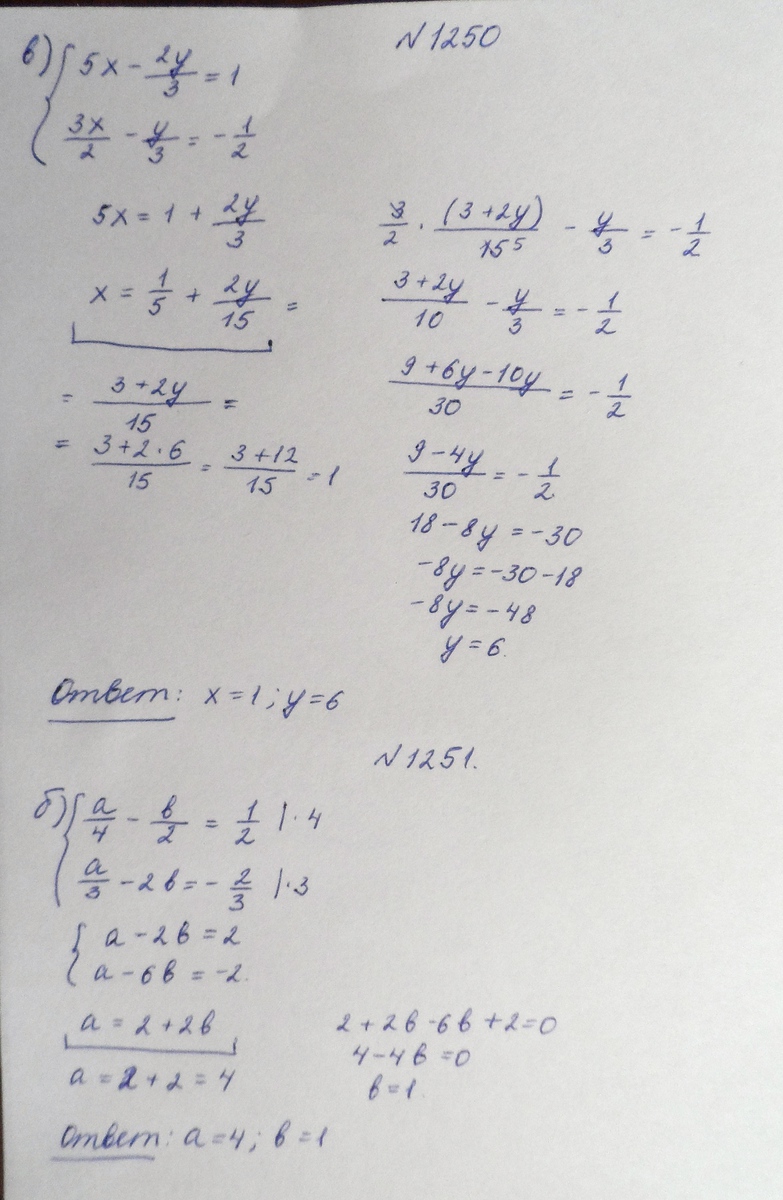 №1250
в) { 5x - 2y/3 = 1
3x/2 - y/3 = -1/2
5x = 1 + 2y/3
x = 1/5 + 2y/15 =
= 3+2y/15 =
= 3+2·6/15 = 3+12/15 = 1
3/2 · (3+2y)/15 5 - y/3 = -1/2
3+2y/10 - y/3 = -1/2
9+6y-10y/30 = -1/2
9-4y/30 = -1/2
18-8y = -30
-8y = -30-18
-8y = -48
y = 6.
Ответ: x=1; y=6
№1251.
б) { a/4 - в/2 = 1/2 |·4
a/3 - 2в = -2/3 |·3
{ a - 2в = 2
a - 6в = -2.
a = 2 + 2в
a = 2 + 2 = 4
2 + 2в - 6в + 2 = 0
4 - 4в = 0
в = 1.
Ответ: a=4; в=1